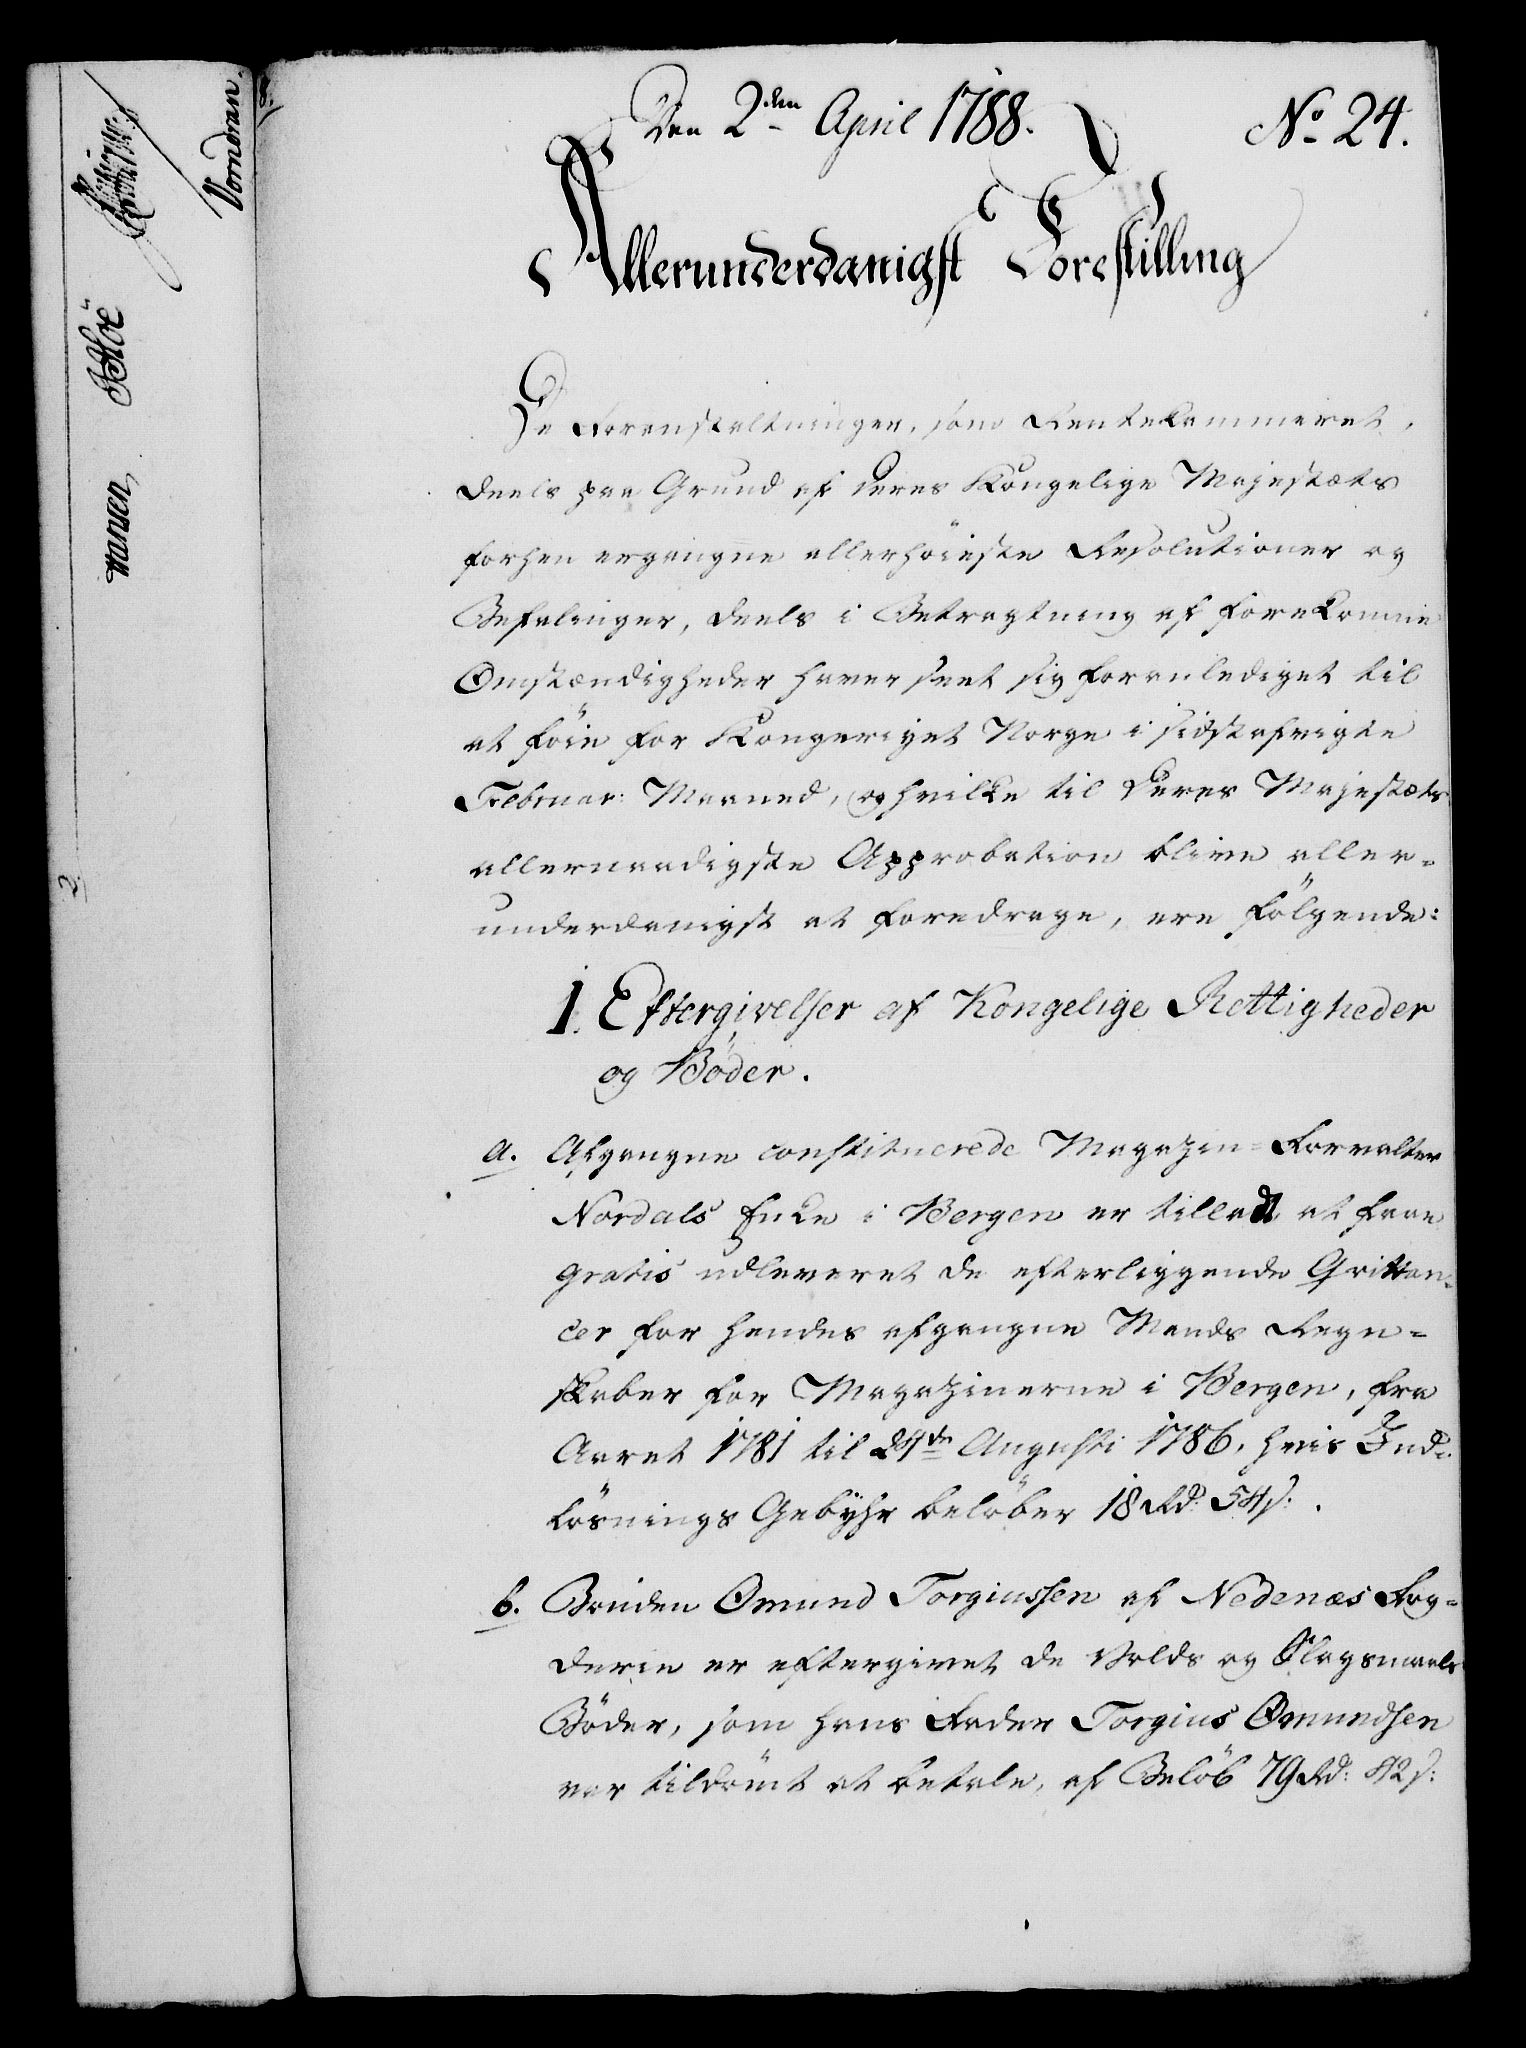 Den 2den April 1788.
No 24.
Allerunderdanigst Forestilling
De Foranstaltninger, som Rentekammeret,
deels paa Grund af Deres Kongelige Majestæts
forhen ergangne allerhöieste Resolutioner og
Befalinger, deels i Betragtning af forekomne
Omstændigheder haver seet sig foranlediget til
at föie for Kongeriget Norge i sidstafvigte
Februar: Maaned, og hvilke til Deres Majestæts
allernaadigste Approbation blive aller=
underdanigst at foredrage, ere fölgende:
1. Eftergivelser af Kongelige Rettigheder
og Böder.
a. Afgangne constituerede Magazin=Forvalter
Nordals Enke i Bergen er tilladt at faae
gratis udleveret de efterliggende Qvittan=
cer for hendes afgangne Mands Regn=
skaber for Magazinerne i Bergen, fra
Aaret 1781 til 24de Augusti 1786, hvis Ind=
lösnings Gebyhr belöber 18 Rd: 54 s:.
b. Bonden Omund Torgiussen af Nedenæs Fog=
derie er eftergivet de Volds og Slagsmaals
Böder, som hans Fader Torgius Omundsen
var tildömt at betale, af Belöb 79 Rd: 42 s:
Vorndran.